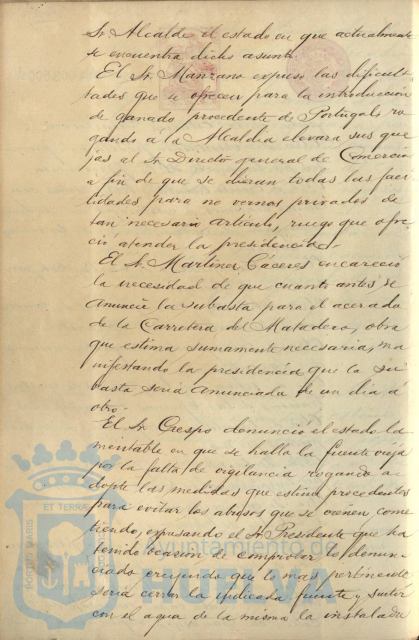 Sr. Alcalde el estado en que actualmente
se encuentra dicho asunto.
El Sr. Manzano expuso las dificul-
tades que se ofrecen para la introducción
de ganado procedente de Portugal ro-
gando á la Alcaldía elevara sus que-
jas al Sr. Director general de Comercio
á fin de que se dieran todas las faci-
lidades para no vernos privados de
tan necesario artículo, ruego que ofre-
ció atender la presidencia.
El Sr. Martinez Cáceres encareció
la necesidad de que cuanto antes se
anuncie la subasta para el acerado
de la Carretera del Matadero, obra
que estima sumamente necesaria, ma-
nifestando la presidencia que la su-
basta seria anunciada de un dia á
otro.
El Sr. Crespo denunció el estado la-
mentable en que se halla la fuente vieja
por la falta de vigilancia rogando a-
dopte las medidas que estime procedentes
para evitar los abusos que se vienen come-
tiendo, expusando el Sr. Presidente que ha
tenido ocasión de comprobar lo denun-
ciado creyendo que lo mas pertinente
seria cerrar la indicada fuente y surtir
con el agua de la misma la instalada
PORTUS MARIS ET TERRAE
Ayuntamiento de
HUELVA